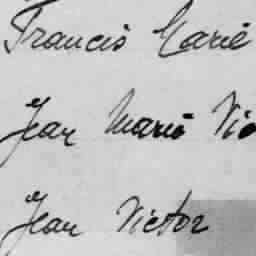 Francis Marie
Jean Marie Vic
Jean Victor